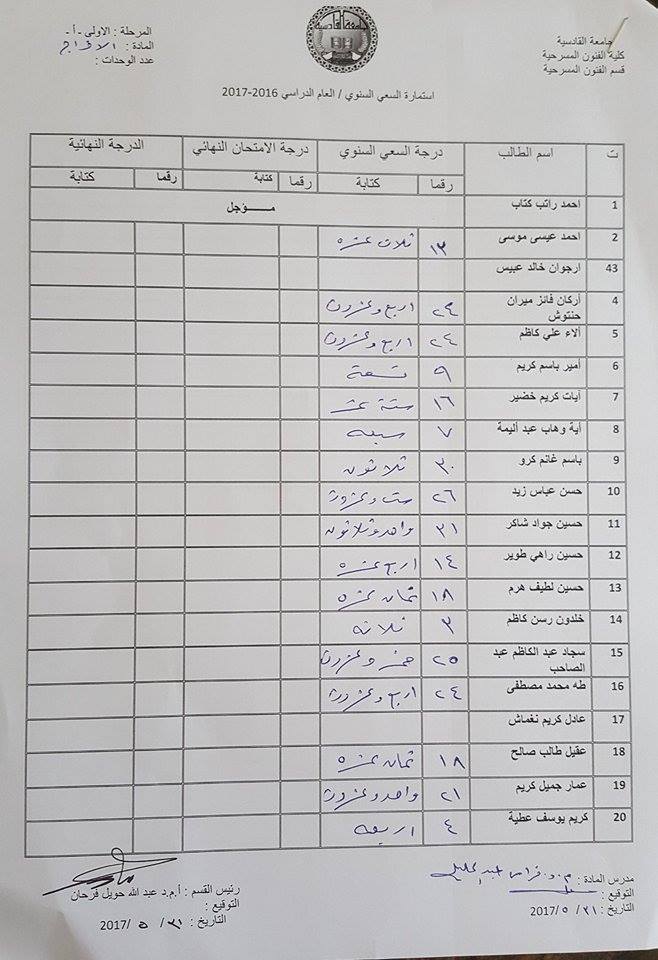 جامعة القادسية
كلية الفنون المسرحية
قسم الفنون المسرحية
المرحلة : الاولى -أ-
المادة : الاخراج
عدد الوحدات :
استمارة السعي السنوي / العام الدراسي 2016-2017
ت اسم الطالب درجة السعي السنوي درجة الامتحان النهائي الدرجة النهائية
رقما كتابة رقما كتابة رقما كتابة
1 احمد راتب كتاب مـــــؤجل
2 احمد عيسى موسى ١٣ ثلاث عشره
43 ارجوان خالد عبيس
4 أركان فائز ميران حنتوش ٢٤ اربع وعشرون
5 ألاء علي كاظم ٢٤ اربع وعشرون
6 أمير باسم كريم ٩ تسعة
7 آيات كريم خضير ١٦ ستة عشر
8 آية وهاب عبد أليمة ٧ سبعه
9 باسم غانم كرو ٣٠ ثلاثون
10 حسن عباس زيد ٢٦ ست وعشرون
11 حسين جواد شاكر ٣١ واحد وثلاثون
12 حسين راهي طوير ١٤ اربع عشره
13 حسين لطيف هرم ١٨ ثمان عشره
14 خلدون رسن كاظم ٣ ثلاثه
15 سجاد عبد الكاظم عبد الصاحب ٢٥ خمس وعشرون
16 طه محمد مصطفى ٢٤ اربع وعشرون
17 عادل كريم نغماش
18 عقيل طالب صالح ١٨ ثمان عشره
19 عمار جميل كريم ٢١ واحد وعشرون
20 كريم يوسف عطية ٤ اربعه
مدرس المادة : م.د. فراس
التوقيع :
التاريخ : ٣١ / ٥ /2017
رئيس القسم : أ.م.د عبد الله حويل فرحان
التوقيع :
التاريخ : ٣١ / ٥ /2017